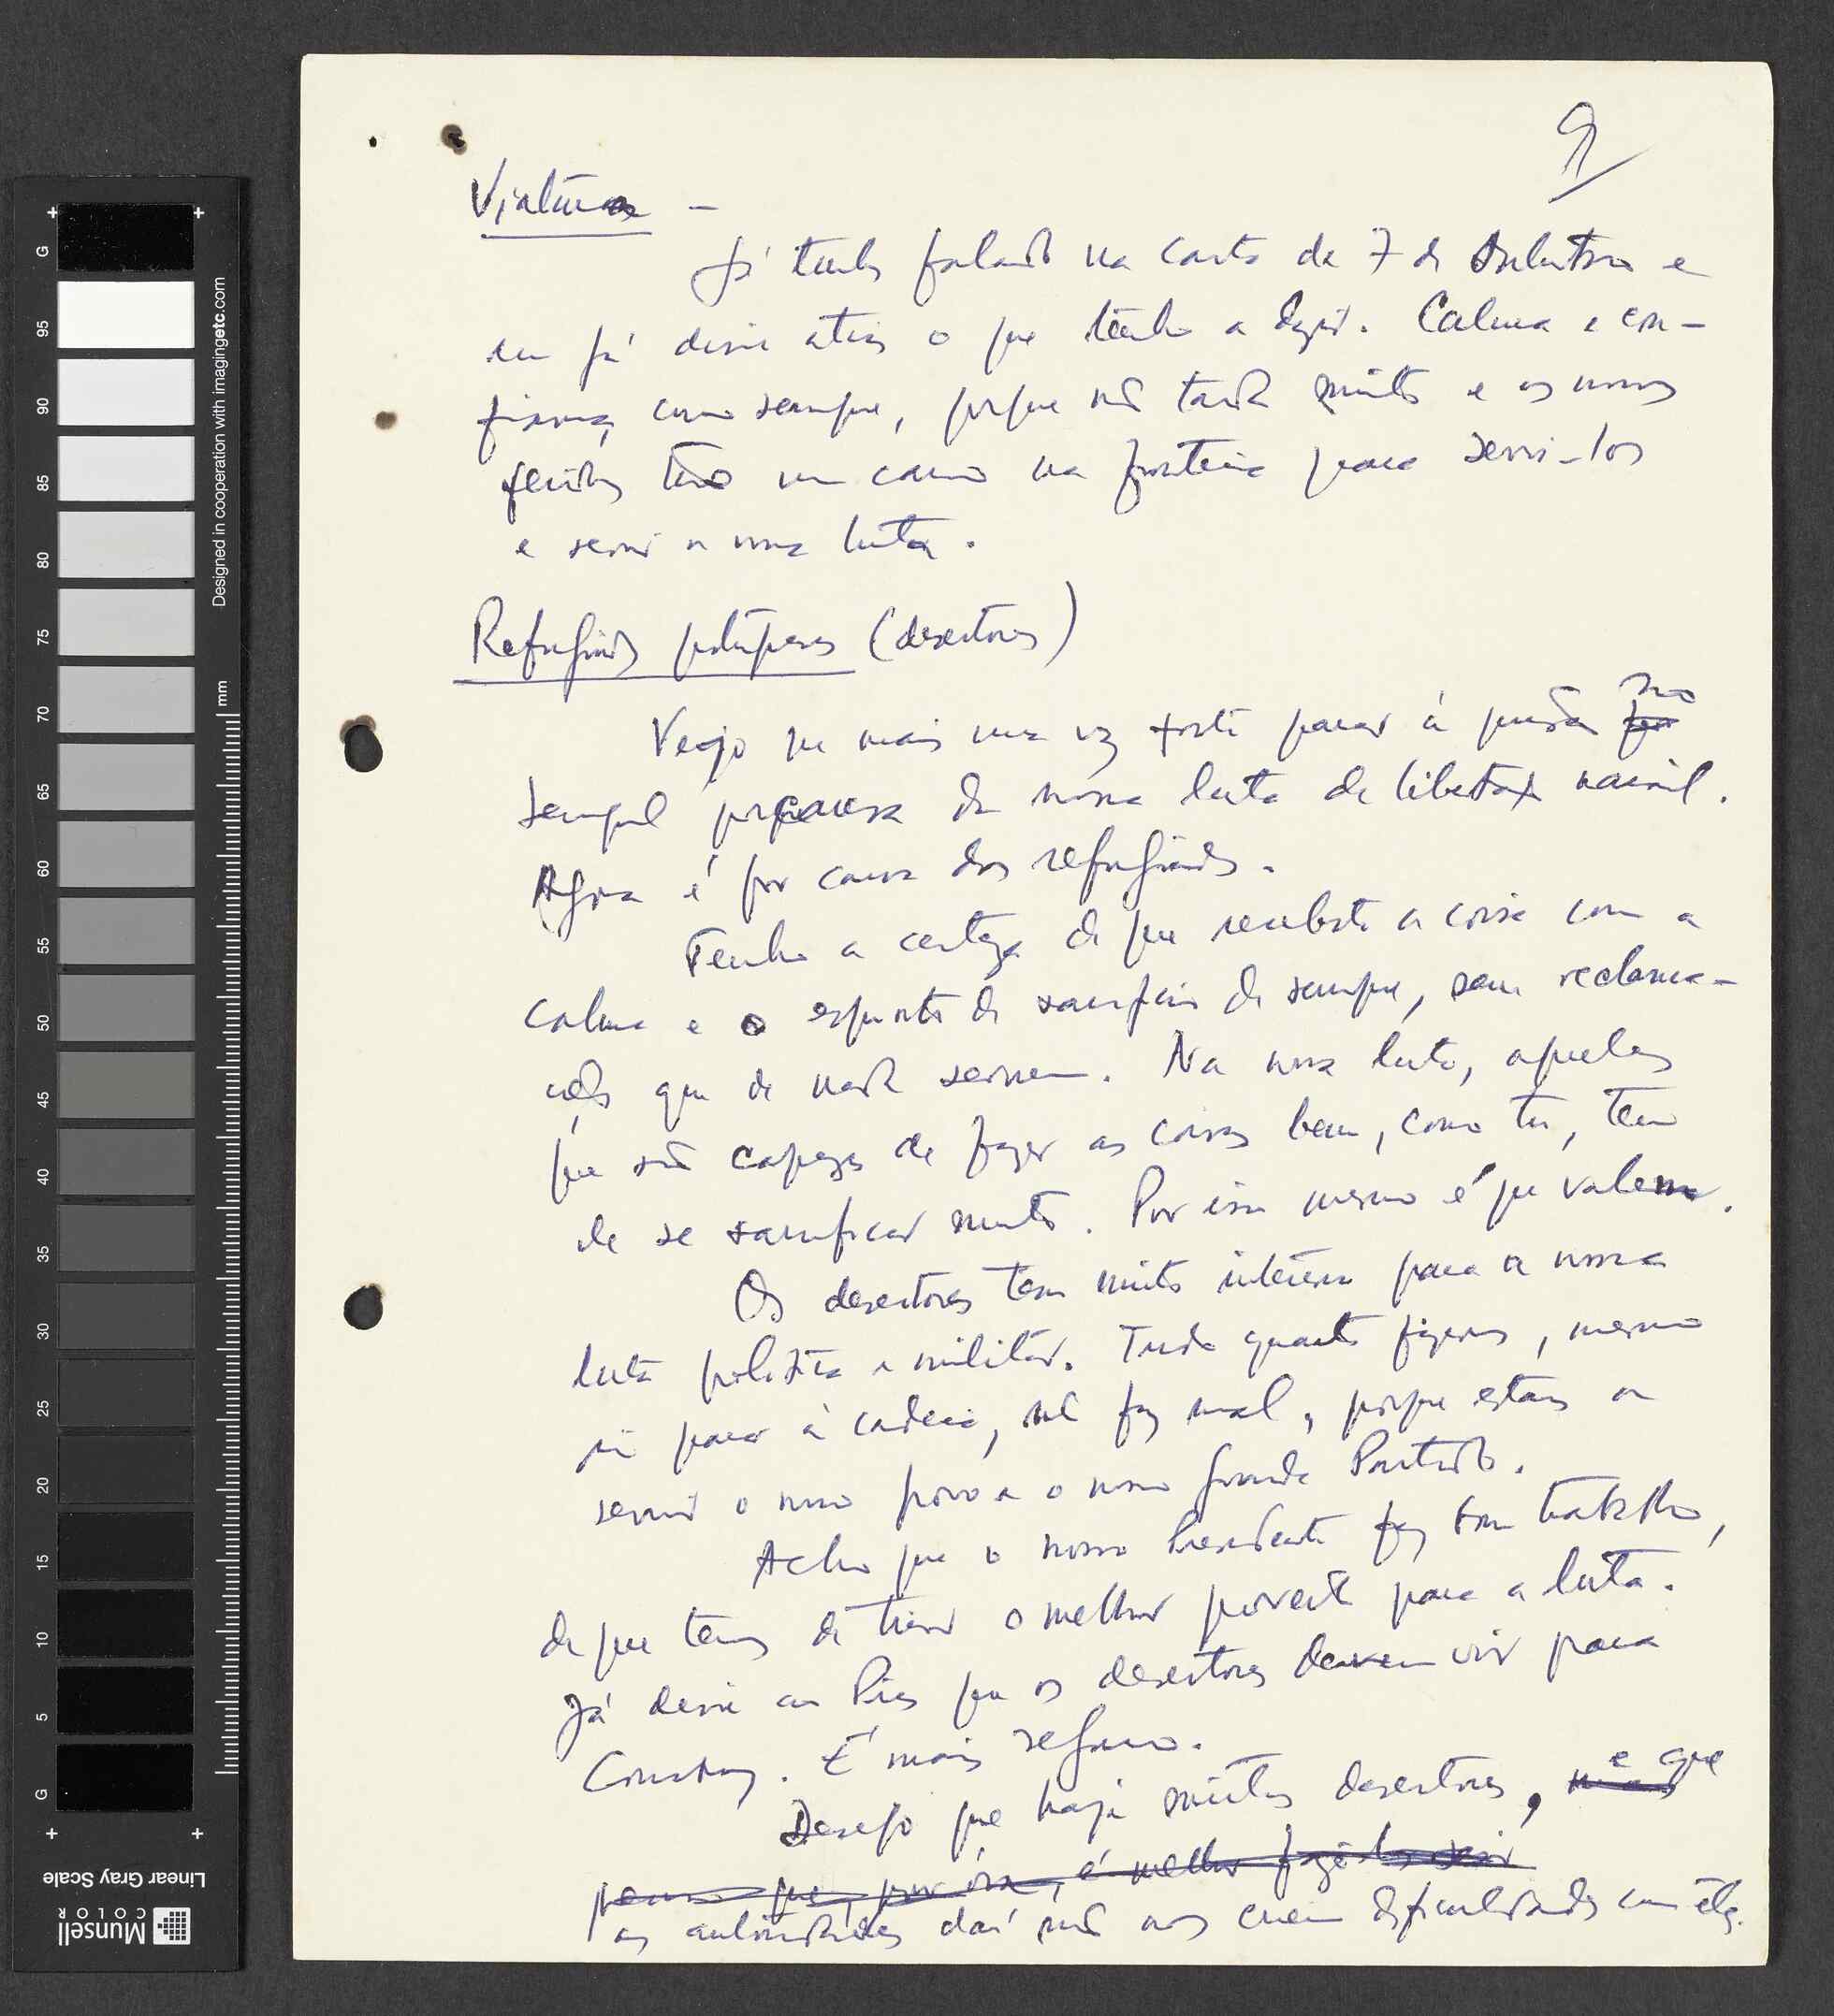 9
Viaturas -
Já tinhas falado na carta de 7 de Outubro e
eu já disse atrás o que tenho a dizer. Calma e con-
fiança, como sempre, porque não tarda muito e os nossos
feridos terão um carro na fronteira para servi-los
e servir a nossa luta.
Refugiados portugueses (desertores)
Vejo que mais uma vez foste parar à prisão no
Senegal por causa da nossa luta de libertação nacional.
Agora é por causa dos refugiados.
Tenho a certeza de que recebeste a coisa com a
calma e o espírito de sacrifício de sempre, sem reclama-
ções que de nada servem. Na nossa luta, aqueles
que são capazes de fazer as coisas bem, como tu, tem
de se sacrificar muito. Por isso mesmo é que valem.
Os desertores tem muito interesse para a nossa
luta política e militar. Tudo quanto fizeres, mesmo
ir parar à cadeia, não faz mal, porque estás a
servir o nosso povo e o nosso grande Partido.
Acho que o nosso Presidente fez bom trabalho,
de que temos de tirar o melhor proveito para a luta.
Já disse ao Pires que os desertores devem vir para
Conakry. É mais seguro.
Desejo que haja muitos desertores, mas e que
penso que, por ora, é melhor fazê-los seguir
as autoridades daí não nos criem dificuldades com êles.
Designed in cooperation with imagingetc.com
mm
G 95 90 85 80 75 70 65 60 55 50 45 40 35 30 25 20 15 10 5 G
Linear Gray Scale
Munsell
COLOR